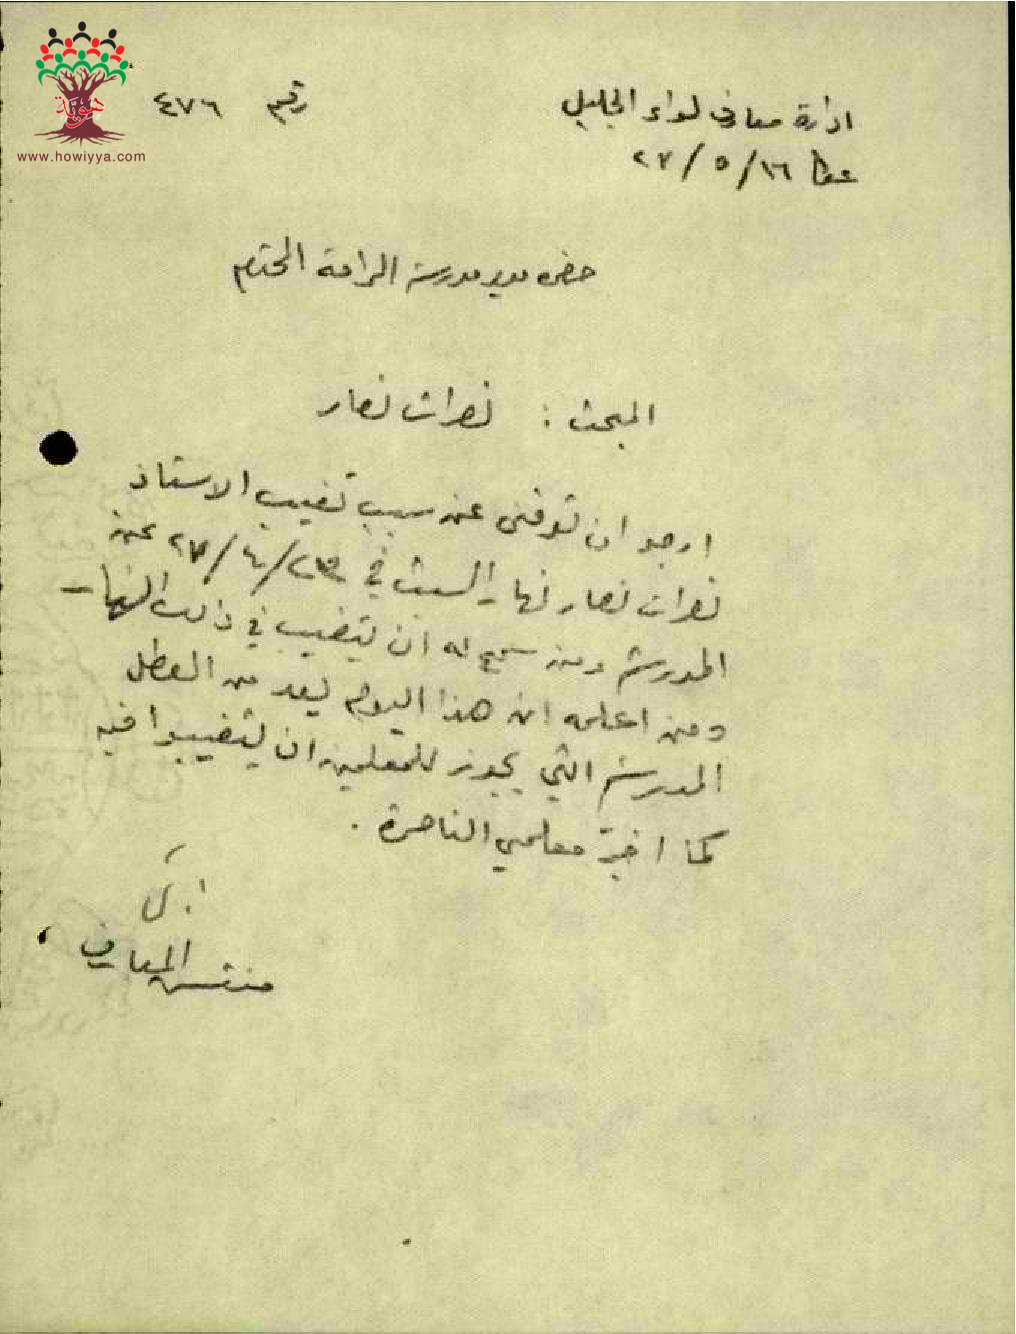 هوية
www.howiyya.com
ادارة معارف لواء الجليل
رقم ٤٧٦
عكا ١٦ / ٥ / ٢٧
حضرة مدير مدرسة الرامة المحترم
المبحث : نصار
ارجو ان توقني عن سبب تغيب الاستاذ
نصار نهار السبت في ٢٣ / ٤ / ٢٧ عن
المدرسة ومن سمح له ان يتغيب في ذلك النهار
ومن اعلمه ان هذا اليوم يعد من العطل
المدرسية التي يجوز للمعلمين ان يتغيبوا فيه
كما اخبر معلمي الناصرة .
مفتش المعارف